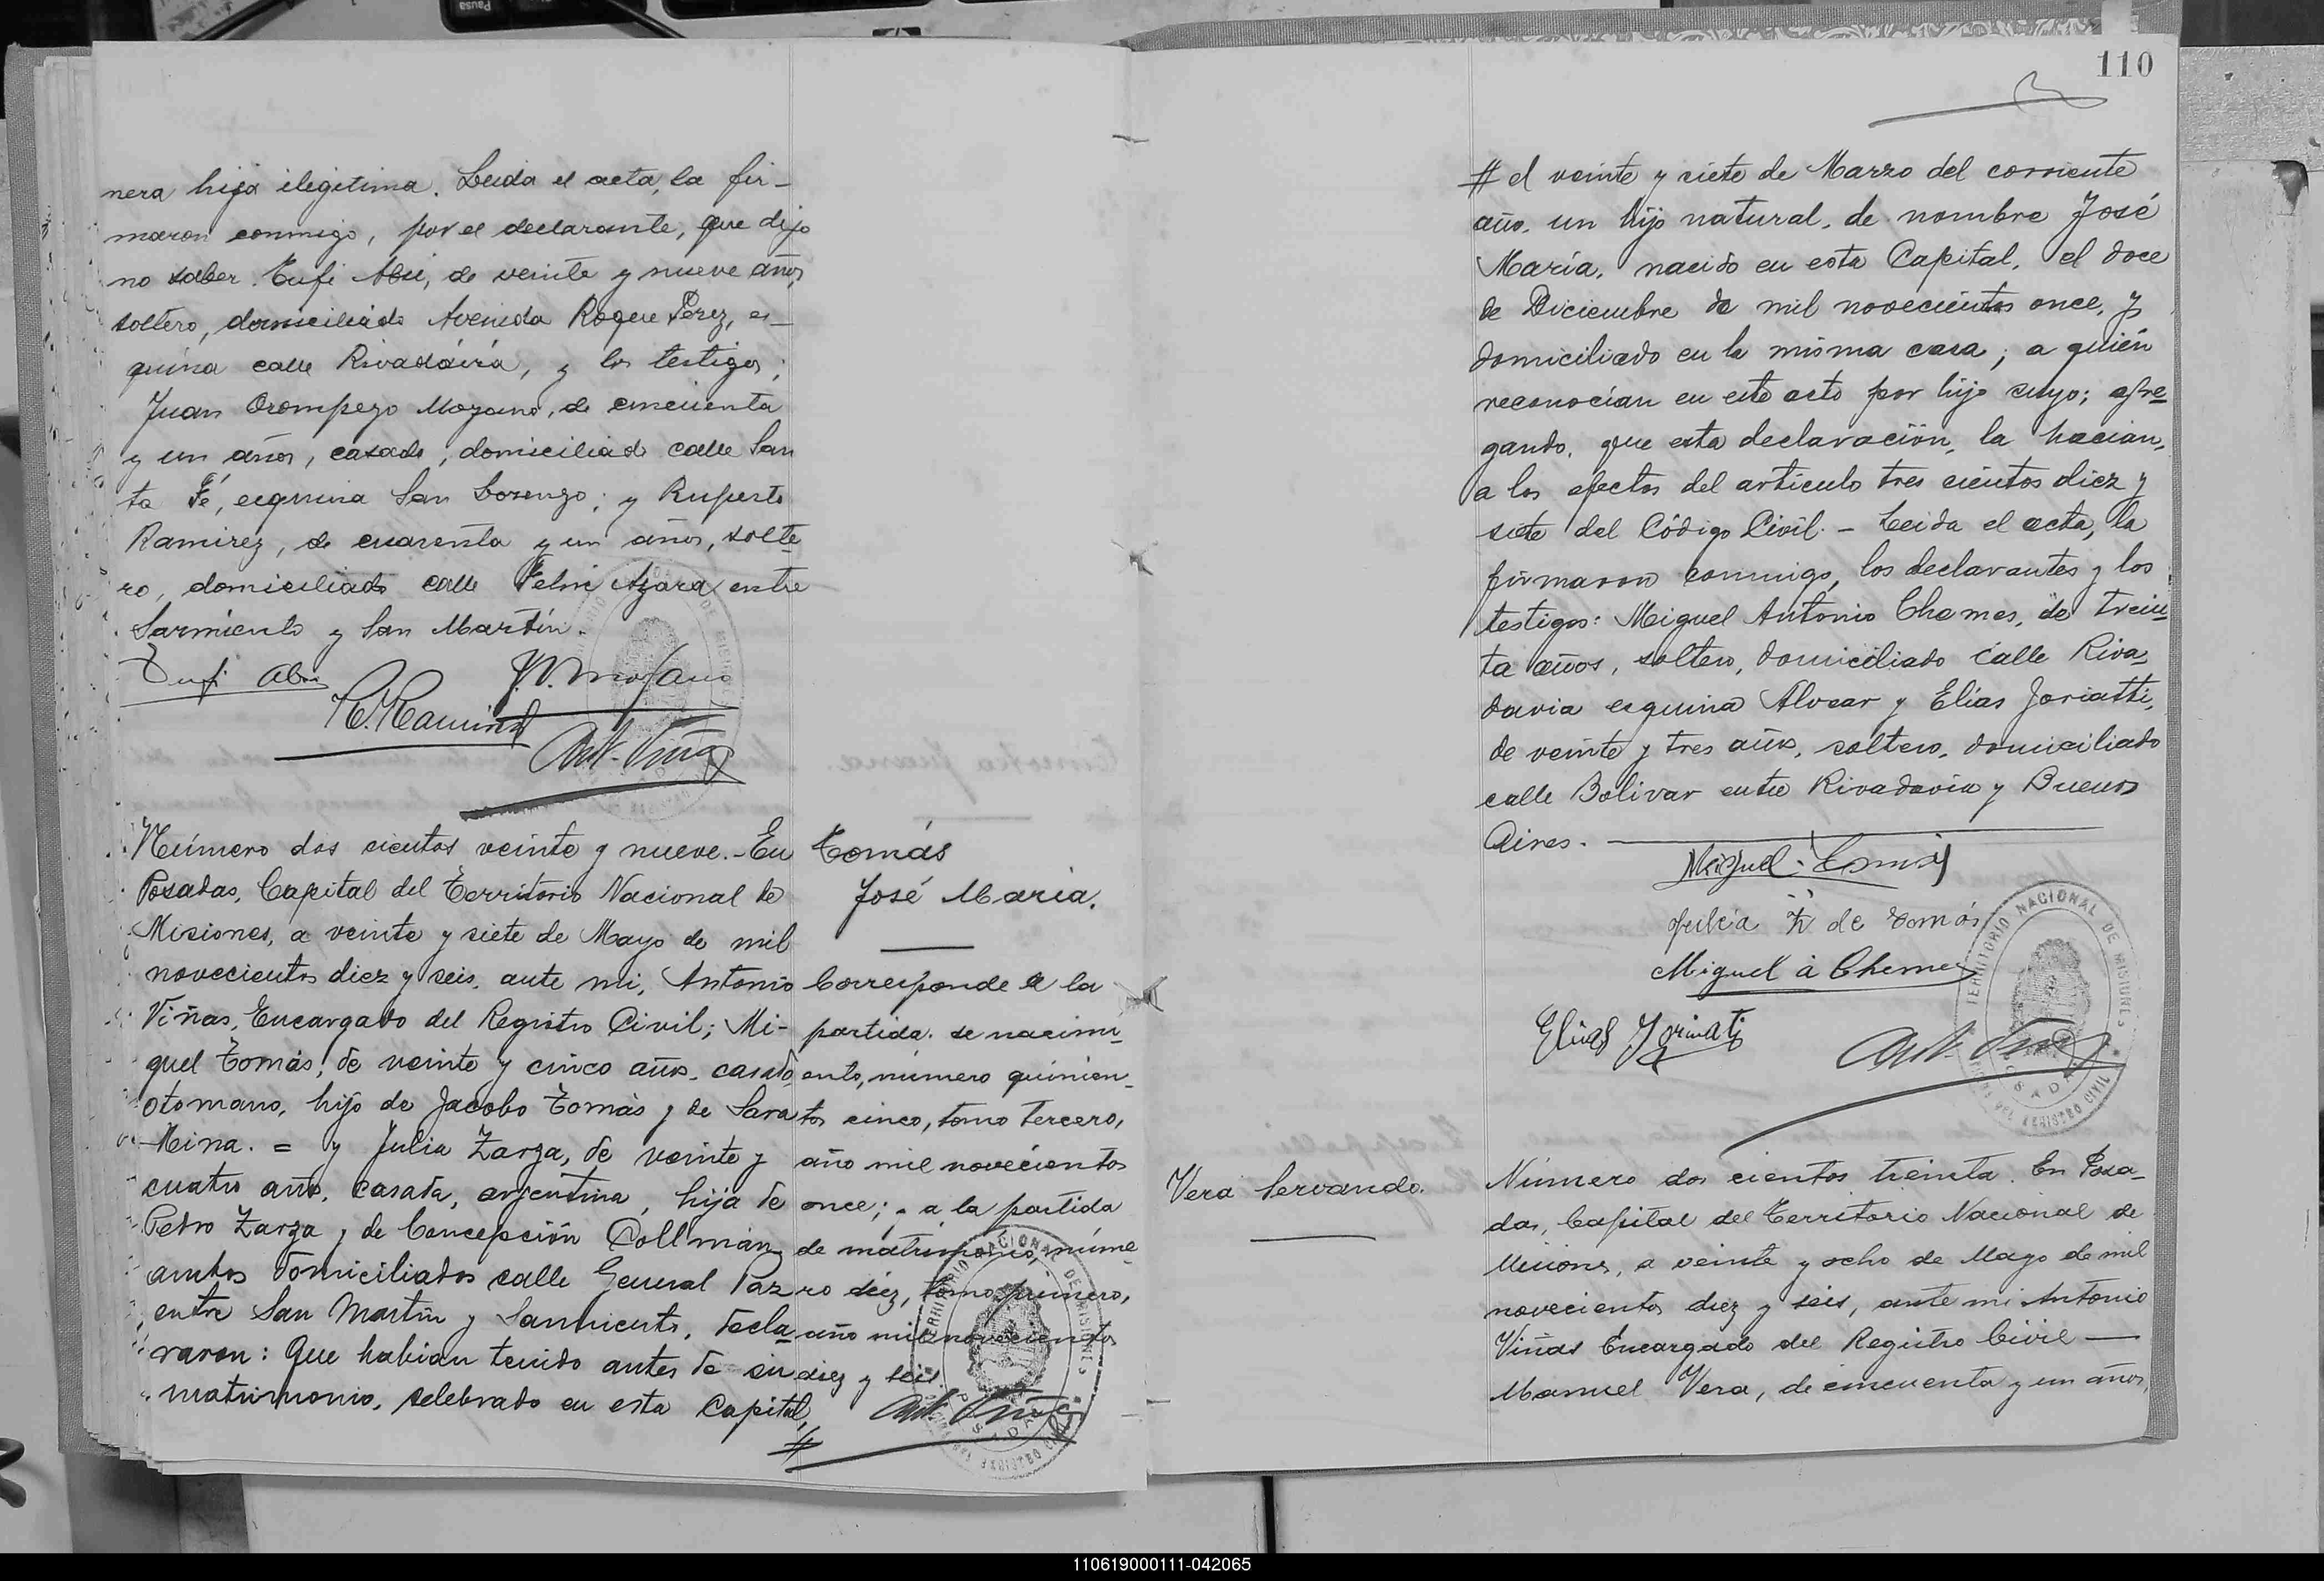 nera hija ilegitima. Leida el acta, la fir-
maron conmigo, por el declarante, que dijo
no saber. Tufi Abú, de veinte y nueve años,
soltero, domiciliado Avenida Roque Perez, es-
quina calle Rivadavia, y los testigos;
Juan Orompezo Moyano, de cincuenta
y un años, casado, domiciliado calle San
ta Fé, esquina San Lorenzo; y Ruperto
Ramirez, de cuarenta y un años, solte
ro, domiciliado calle Felix Azara entre
Sarmiento y San Martín.
Tufi Abu
R. Ramirez
Ant. Viñas
Número dos cientos veinte y nueve.- En
Posadas, Capital del Territorio Nacional de
Misiones, a veinte y siete de Mayo de mil
novecientos diez y seis, ante mi, Antonio
Viñas, Encargado del Registro Civil; Mi-
guel Tomás, de veinte y cinco años, casado
otomano, hijo de Jacobo Tomás y de Sara
Mina. = y Julia Zarza, de veinte y
cuatro años, casada, argentina, hija de
Pedro Zarza y de Concepción Collmán,
ambos domiciliados calle General Paz
entre San Martín y Sarmiento, decla
raron: Que habian tenido antes de su
matrimonio, celebrado en esta Capital,
#
Tomás
José Maria.
Corresponde a la
partida de nacimi
ento, número quinien-
tos cinco, tomo tercero,
año mil novecientos
once; y a la partida
de matrimonio, núme
ro diez, tomo primero,
año mil novecientos
diez y seis.
Ant. Viñas
110
# el veinte y siete de Marzo del corriente
año, un hijo natural, de nombre José
María, nacido en esta Capital, el doce
de Diciembre de mil novecientos once, y
domiciliado en la misma casa; a quién
reconocían en este acto por hijo suyo; agre
gando, que esta declaración, la hacian,
a los efectos del artículo tres cientos diez y
siete del Código Civil. - Leida el acta, la
firmaron conmigo, los declarantes y los
testigos: Miguel Antonio Chemes, de trein
ta años, soltero, domiciliado calle Riva
davia esquina Alvear y Elías Joriatti,
de veinte y tres años, soltero, domiciliado
calle Bolivar entre Rivadavia y Buenos
Aires.
Miguel Tomás
Julia Z de Tomás
Miguel A Chemes
Elias Joriati
Ant. Viñas
TERRITORIO NACIONAL DE MISIONES
POSADAS
Vera Servando.
Número dos cientos treinta. En Posa-
das, Capital del Territorio Nacional de
Misiones, a veinte y ocho de Mayo de mil
novecientos diez y seis, ante mi Antonio
Viñas Encargado del Registro Civil
Manuel Vera, de cincuenta y un años,
110619000111-042065